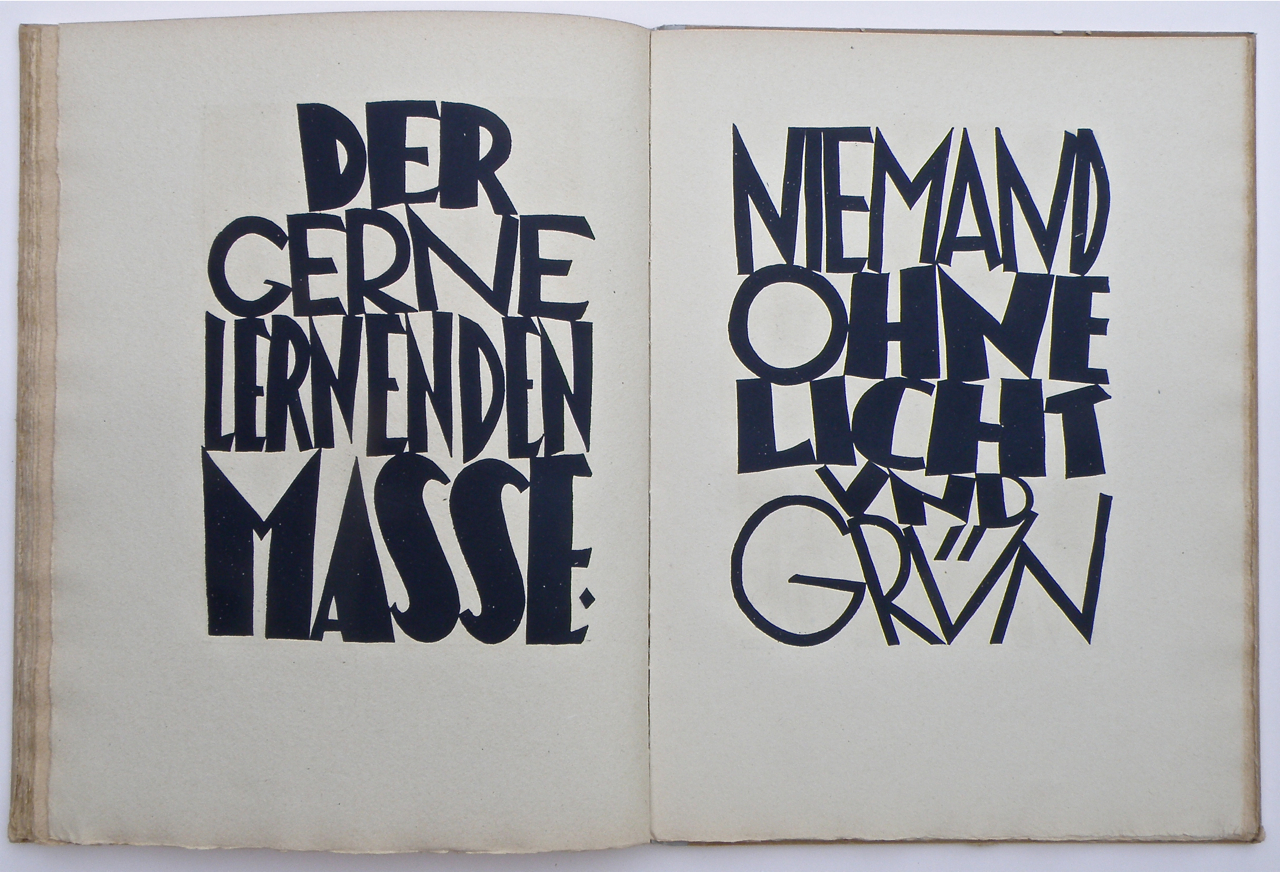 DER
GERNE
LERNENDEN
MASSE.
NIEMAND
OHNE
LICHT
VND
GRÜN